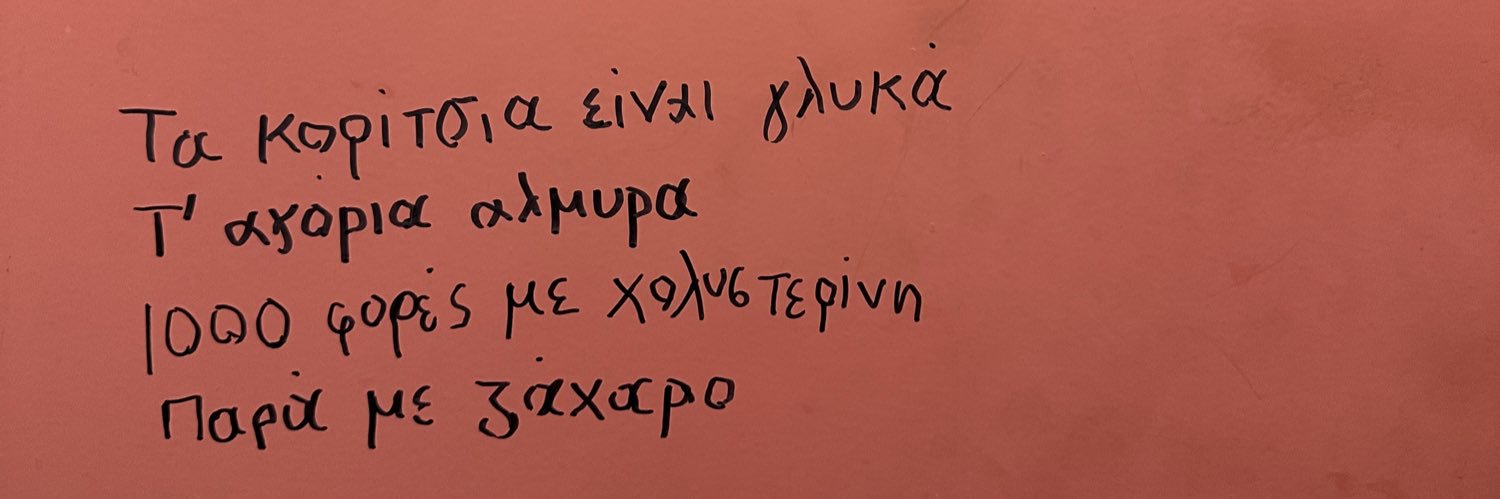 Τα κορίτσια είναι γλυκά
Τ' αγόρια αλμυρα
1000 φορές με χολυστερίνη
Παρά με ζάχαρο